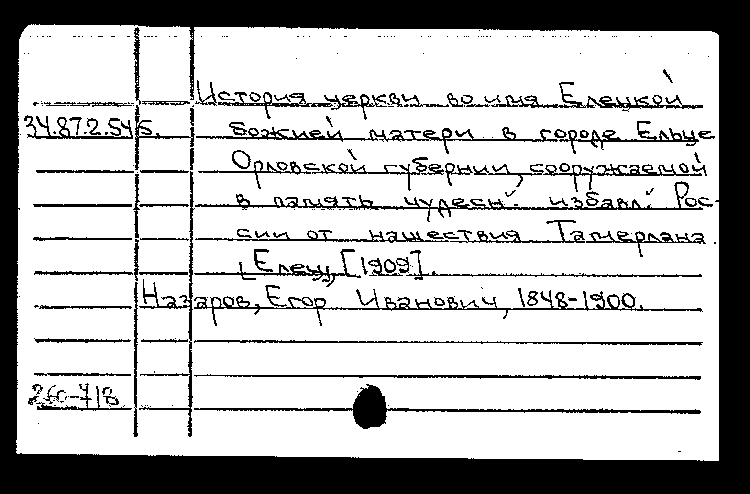 История церкви во имя Елецкой
34.87.2.545. божией матери в городе Ельце
Орловской губернии, сооружаемой
в память чудесн. избавл. Рос-
сии от нашествия Тамерлана.
[Елец, [1909].
Назаров, Егор Иванович, 1848-1900.
260-718